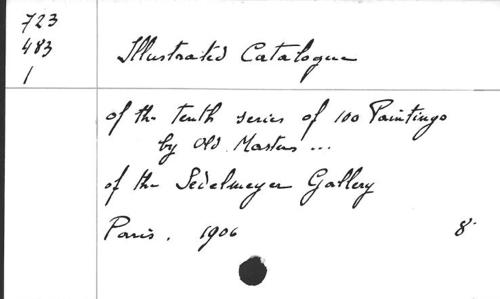 723
483
1
Illustrated Catalogue
of the tenth series of 100 Paintings
by Old Masters ...
of the Sedelmeyer Gallery
Paris. 1906 8°